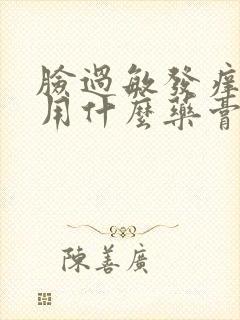 臉過敏發痒
用什麼藥膏
陳善廣